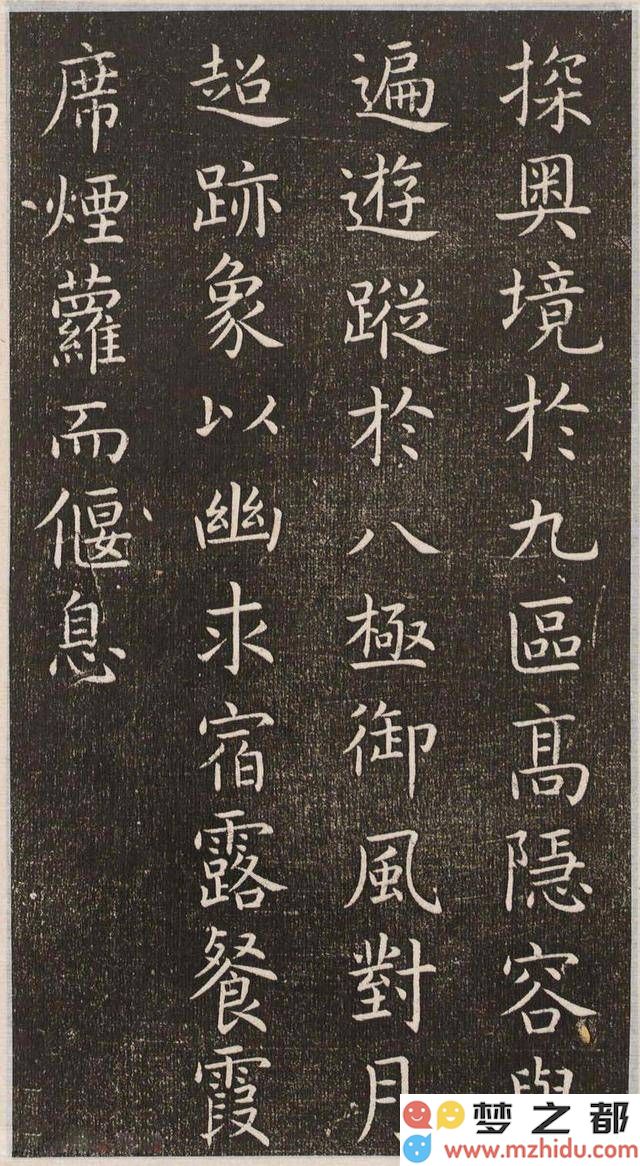 探奧境於九區高隱容與
遍遊蹤於八極御風對月
超跡象以幽求宿露餐霞
席煙蘿而偃息
梦之都
www.mzhidu.com